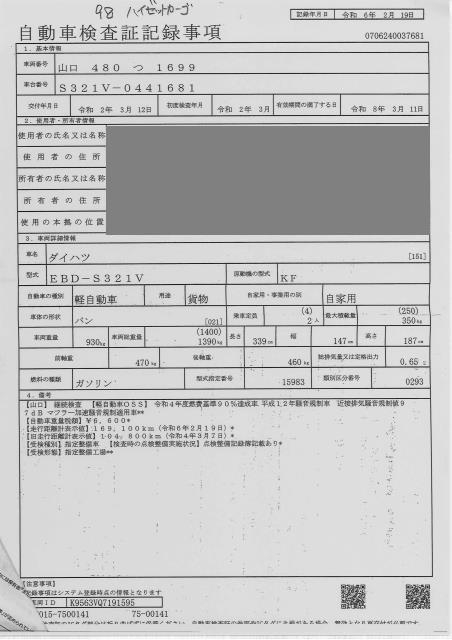 98 ハイゼットカーゴ
記録年月日 令和 6年 2月 19日
自動車検査証記録事項
0706240037681
1. 基本情報
車両番号 山口 480 つ 1699
車台番号 S321V-0441681
交付年月日 令和 2年 3月 12日 初度検査年月 令和 2年 3月 有効期間の満了する日 令和 8年 3月 11日
2. 使用者・所有者情報
使用者の氏名又は名称
使用者の住所
所有者の氏名又は名称
所有者の住所
使用の本拠の位置
3. 車両詳細情報
車名 ダイハツ [151]
型式 EBD-S321V 原動機の型式 KF
自動車の種別 軽自動車 用途 貨物 自家用・事業用の別 自家用
車体の形状 バン [021] 乗車定員 (4) 2人 最大積載量 (250) 350kg
車両重量 930kg 車両総重量 (1400) 1390kg 長さ 339cm 幅 147cm 高さ 187cm
前軸重 470kg 後軸重 460kg 総排気量又は定格出力 0.65
燃料の種類 ガソリン 型式指定番号 15983 類別区分番号 0293
4. 備考
【山口】 継続検査 【軽自動車OSS】 令和4年度燃費基準90%達成車 平成12年騒音規制車 近接排気騒音規制値9
7dB マフラー加速騒音規制適用車**
【自動車重量税額】¥6,600*
【走行距離計表示値】169,100km(令和6年2月19日)*
【旧走行距離計表示値】104,800km(令和4年3月7日)*
【受検種別】指定整備車 【検査時の点検整備実施状況】点検整備記録簿記載あり*
【受検形態】指定整備工場**
【注意事項】
記録事項はシステム登録時点の情報となります
車両ID K9563VQ7191595
015-7500141 75-00141